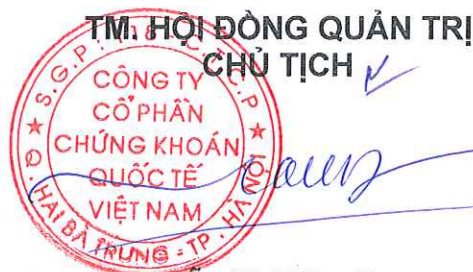 TM. HỘI ĐỒNG QUẢN TRỊ
CHỦ TỊCH
CÔNG TY
CỔ PHẦN
CHỨNG KHOÁN
QUỐC TẾ
VIỆT NAM
Q. HAI BÀ TRƯNG - TP. HÀ NỘI